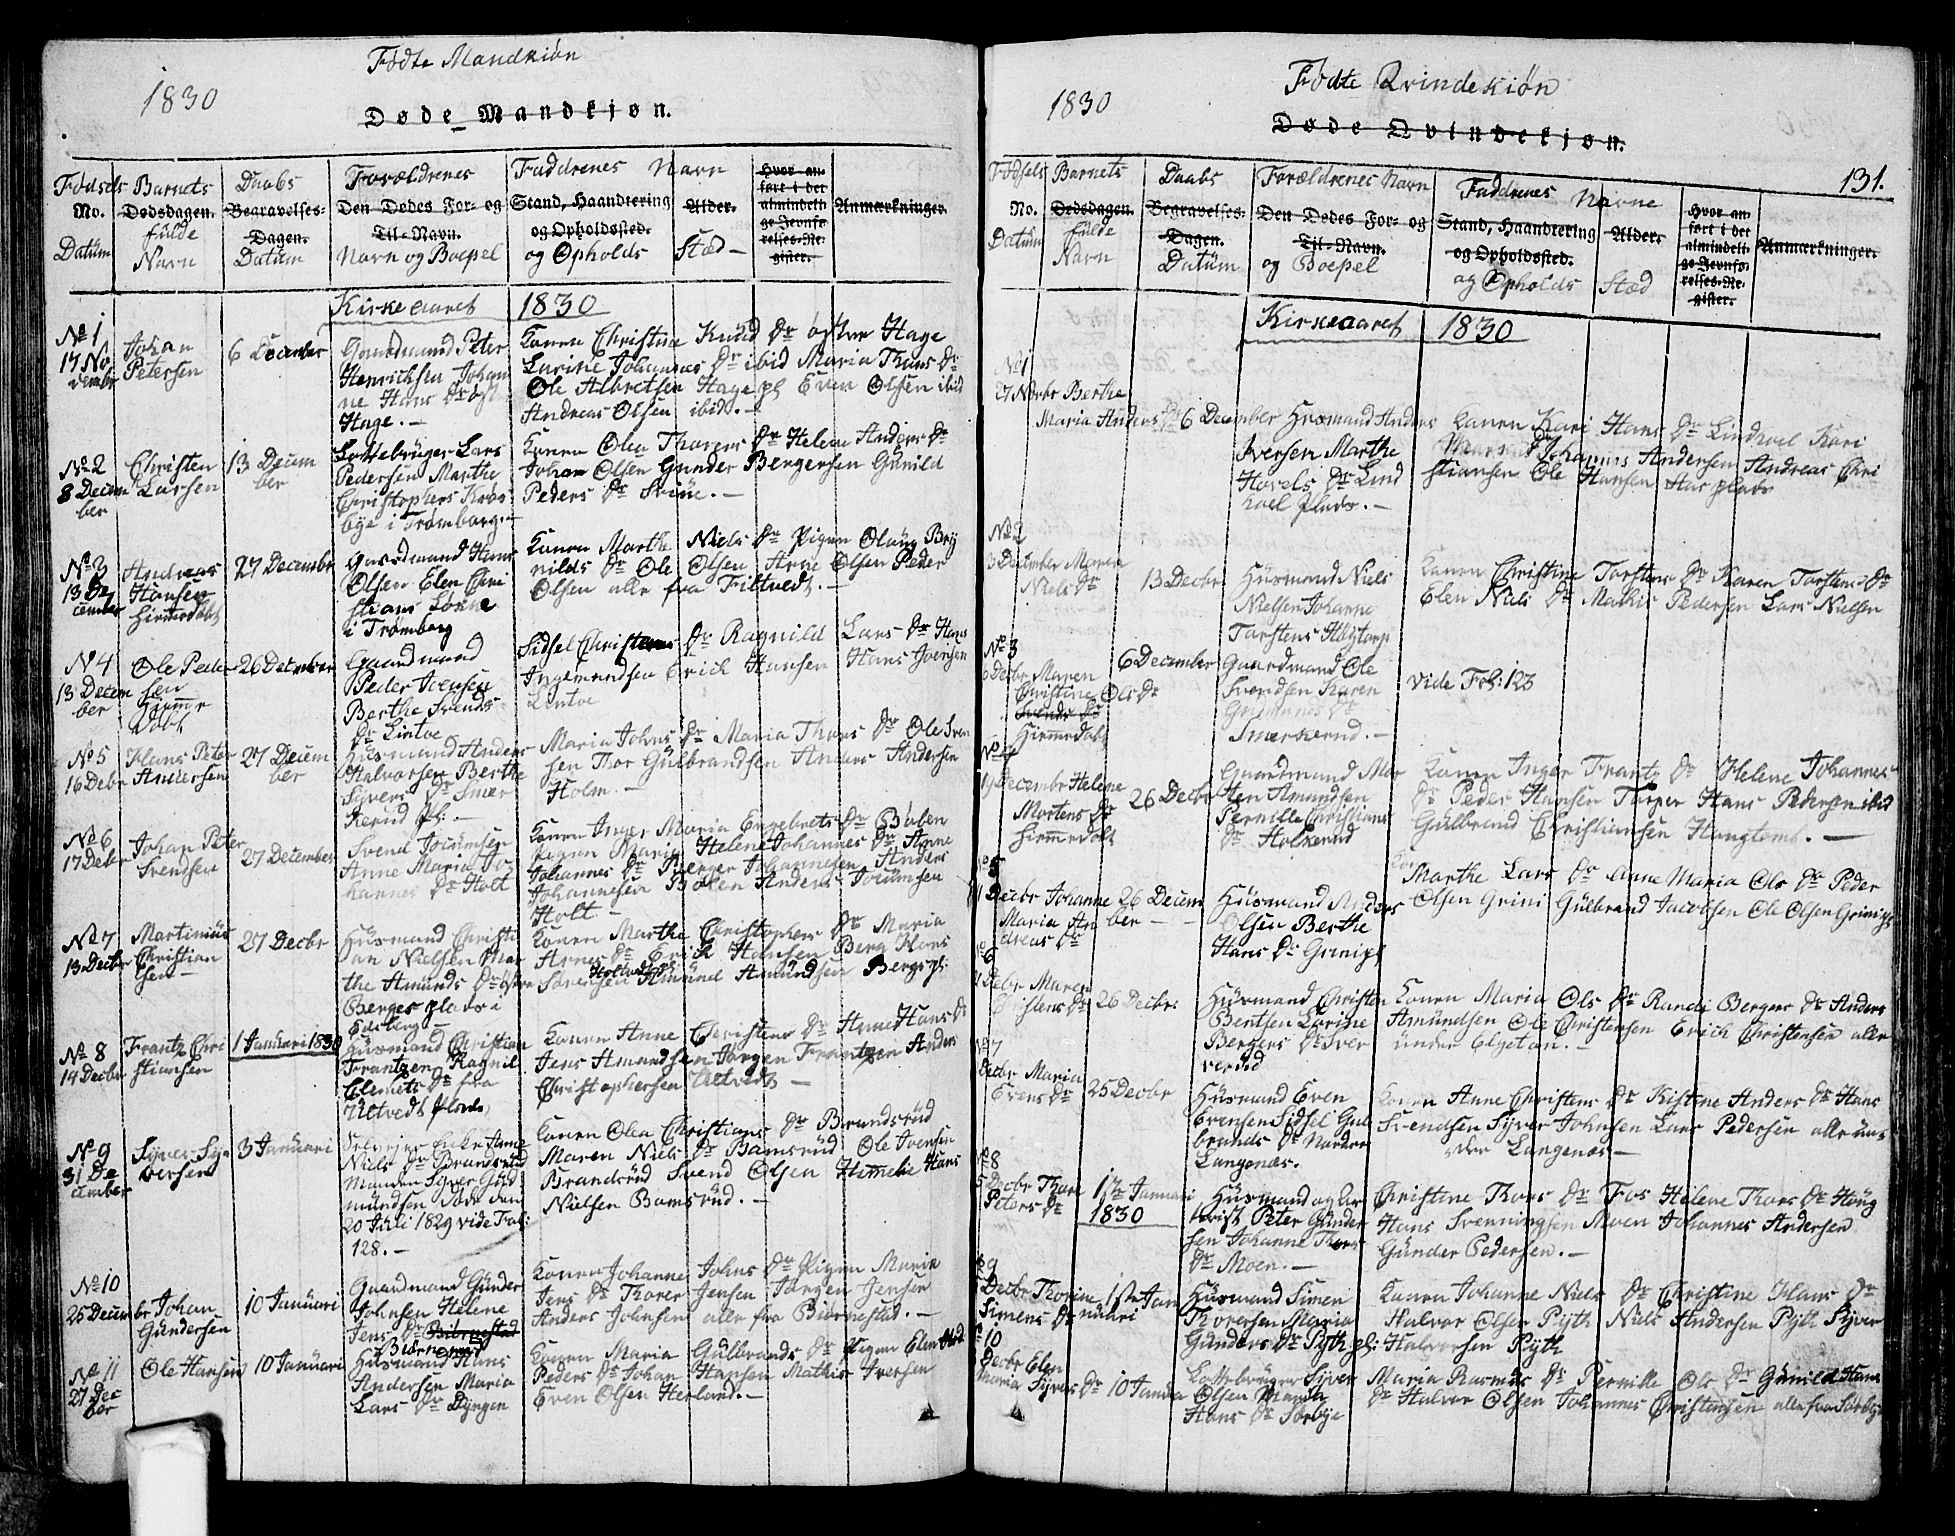 Fødte Mandkiøn
1830
Døde Mandkjøn.
Fødsels Barnets Daabs Forældrenes Faddrenes Navn
No. Dødsdagen. Begravelses-Dagen. Den Dødes For- og Til-Navn. Stand, Haandtering og Opholdssted. Alder. Hvor anført i det almindelige Jevnførelses-Register. Anmærkninger.
Datüm fülde Navn Datüm Navn og Boepel og Opholds Stæd
Kirkeaaret 1830
No 1
17 November
Johan
Petersen
6 December
Gaardmand Peter
Henrichsen Johan
ne Hans Dr øst
Hage.-
Konen Christine Knüd Dr østre Hage
Larine Johannes Dr ibid Maria Thors Dr
Ole Albretsen Hage pl Even Olsen ibid
Andreas Olsen ibid.-
No 2
8 Decem
ber
Christen
Larsen
13 Decem
ber
Lottebrüger Lars
Pedersen Marthe
Christophers Kros
bye i Trømborg.-
Konen Olea Thorers Dr Helene Anders Dr
Johan Olsen Gunder Bergersen Günild
Peders Dr
No 3
13 De
cember
Andreas
Hansen
Hiemedøbt
27 December
Gaardmand Hans
Olsen Elen Chri
stians
i Trømborg
Konen Marthe Niels Dr Pigen Olaug Bry
nilds Dr Ole Olsen Arne Olsen Peder
Olsen alle fra Tiltvedt.-
N 4
13 Decem
ber
Ole Peder
sen
Hiemme
døbt
26 December
Gaardmand
Peder Joensen
Berthe Svends
Dr Lintoe
Sidsel Christens Dr Ragnild Lars Dr Hans
Ingemundsen Erich Hansen Hans Joensen
Lintoe
No 5
16 Debr
Hans Peter
Andersen
27 Decem
ber
Hüsmand Anders
Halvorsen Berthe
Syvers Dr Smer
kerud pl:.-
Maria Johns Dr Maria Thors Dr Ole Sven
sen Thor Gülbrandsen Anders Andersen
Holm.-
No 6
17 Debr
Johan Peter
Svendsen
27 December
Svend Jocumsen
Anne Maria Jo
hannes Dr Holt
Konen Inger Maria Engebrets Dr Bøben
Pigen Maria Helene Johannes Dr Anne
Johannes Dr Berger Johannesen Anders
Johannesen Bølen Anders Jocumsen
Holt -
No 7
13 Decbr
Martiniüs
Christian
sen -
27 Decbr
Hüsmand Christi
an Nielsen Mar
the Amunds Dr østre
Berges plads i
Edsberg -
Konen Marthe Christophers Dr Maria
Arnes Dr Erick Hansen Berg Hans
Sørensen Amünd Amündsen Bergs pl:
No 8
14 Decbr
Frantz Chri
stiansen
1 Januari 1830
Hüsmand Christian
Frantzen Ragnil
Clemets Dr fra
Ültvedt plads
Konen Anne Christens Dr Anne Hans Dr
Jens Amandsen Jørgen Frantzen Anders
Christophersen Ültvedt -
No 9
31 De
cember
Syver Sy
versen
3 Januari
Enke Anne
Niels Dr Brandsrud
Manden Syver Gud
mündsen døde den
20 Juli 1829 vide Fol:
128.-
Konen Olea Christians Dr Brandsrüd
Maren Niels Dr Bamsrüd Ole Ivensen
Brandsrüd Svend Olsen Hans
Nielsen Bamsrüd.-
No 10
25 Decembr
Johan
Gündersen
10 Januari
Gaardmand Günder
Johnsen Helene
Jens Dr Biørnestad
Konen Johanne Johns Dr Pigen Maria
Jens Dr Thorer Jensen Jørgen Jensen
Anders Johnsen alle fra Biørnestad.-
No 11
27 Dec
ber
Ole Hansen
10 Januari
Hüsmand Hans
Andersen Maria
Lars Dr Dyngen
Konen Maria Gulbrands Dr Pigen Elen
Peders Dr Johan Hansen Mathis Iversen
Even Olsen Herland.-
Fødte Qvindekiøn
1830
Døde Qvindekjøn.
131.
Fødsels Barnets Daabs Forældrenes Navn Faddrenes Navne
No. Dødsdagen. Begravelses-Dagen. Den Dødes For- og Til-Navn. Stand, Haandtering og Opholdssted. Alder. Hvor anført i det almindelige Jevnførelses-Register. Anmærkninger.
Datüm fülde Navn Datüm og Boepel og Opholds Stæd
Kirkeaaret 1830
No 1
27 Novbr Berthe
Maria Anders Dr
6 December
Husmand Anders
Iversen Marthe
Hovels Dr Lind
hoel plads.-
Konen Kari Hans Dr Lindhoel Kari
Johannes Andersen Andreas Chri
stiansen Ole Hansen
No 2
3 December Maren
Niels Dr
13 Decbr
Hüsmand Niels
Nielsen Johanne
Torstens Høytorp
Konen Christine Torstens Dr Karen Torstens Dr
Elen Niels Dr Mathis Pedersen Lars Nielsen
No 3
6 Decbr Maren
Christine Ols Dr
Svends Dr
Hiemedøbt
6 December
Gaardmand Ole
Svendsen Karen
Gudmunds Dr
Smerkerud.-
Vide Fol: 123
No 4
19 Decembr Helene
Mortens Dr
Hiemmedøbt
26 Decbr
Gaardmand Mor
ten Amundsen
Pernille Christians
Dr Holkerud
Konen Inger Frantz Dr Helene Johannes
Dr Peder Hansen Torper Hans Pedersen ibid
Gülbrand Christiansen Haugtomt.-
No 5
Decbr Johanne
Maria An
dreas Dr
26 Decem
ber -
Hüsmand Anders
Olsen Berthe
Hans Dr Grini pl
Marthe Lars Dr Anne Maria Ols Dr Peder
Olsen Grini Gülbrand Jacobsen Ole Olsen Grini pl
No 6
Debr Maren
Christens Dr
26 Decbr:
Hüsmand Christen
Bentsen Larine
Bergers Dr Iver
verød
Konen Maria Ols Dr Randi Bergers Dr Anders
Amündsen Ole Christensen Erich Christensen alle
under Elgetun.-
No 7
Decbr Maria
Evens Dr
25 Decbr
Hüsmand Even
Evensen Sidsel Gul
brands Dr Nordre
Langenæs.
Konen Anne Christens Dr Kistine Anders Dr Hans
Svendsen Syver Johnsen Lars Pedersen alle ün
der Langenæs -
No 8
Decbr Thore
Peters Dr
17 Januari
1830
Hüsmand og
Peter Günder
sen Johanne Thors
Dr Moen.-
Christine Thors Dr Fos Helene Thors Dr Houg
Hans Svenningsen Moen Johannes Andersen
Günder Pedersen.-
9
Decbr Thorine
Simens Dr
Januari
Hüsmand Simen
Thoresen Maria
Günders Dr Pyth pl:
Konen Johanne Niels Dr Christine Hans Dr
Halvor Olsen Pyth Niels Andersen Pyth Syver
Halvorsen Pyth
10
Decbr Elen
Maria Syvers Dr
10 Janua
Lottebrüger Syver
Olsen Marth
Hans Dr Sørbye
Maria Rasmüs Dr Pernille Ols Dr Günild Hans
Dr Halvor Olsen Johannes Christensen alle fra Sørbye